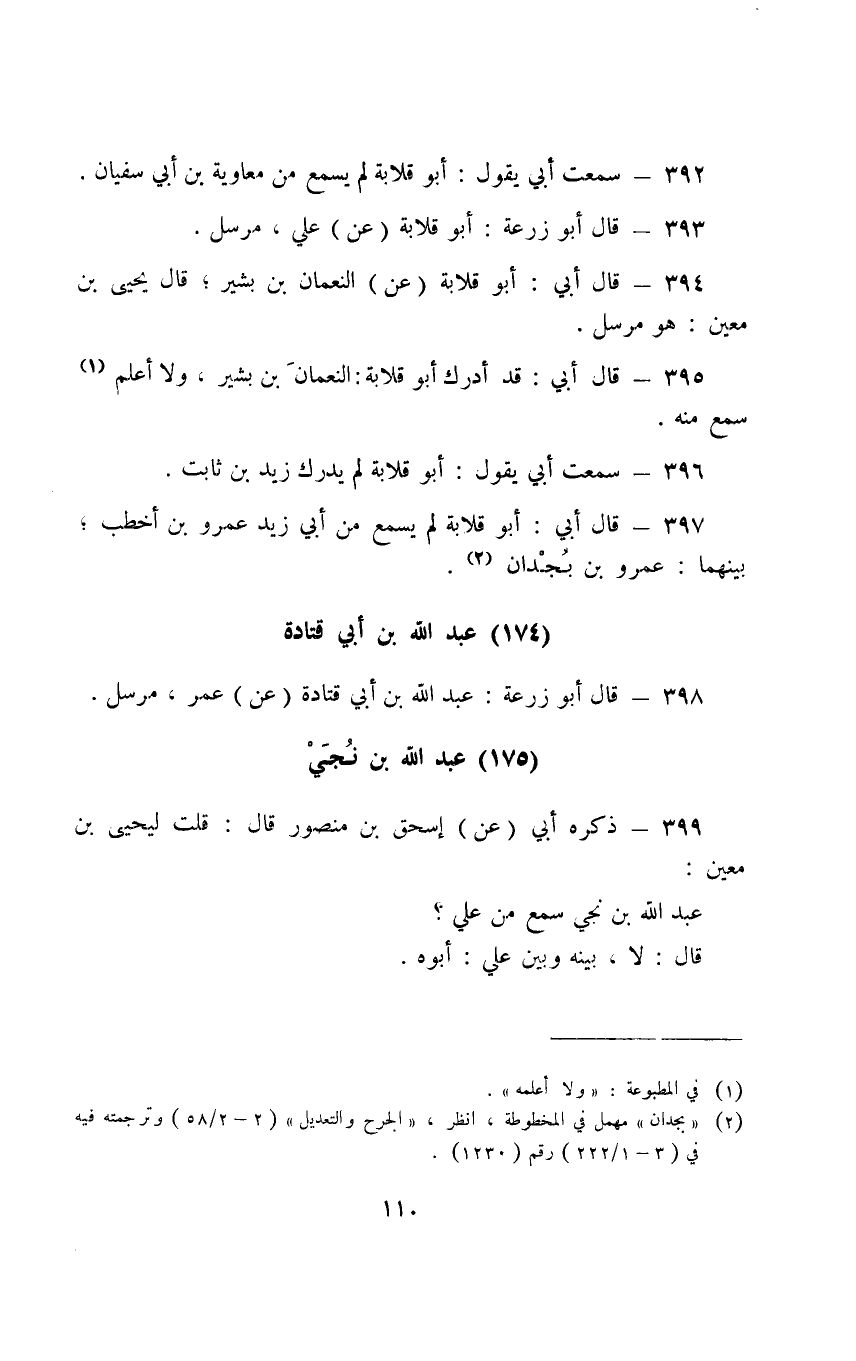 ٣٩٢ — سمعت أبي يقول : أبو قلابة لم يسمع من معاوية بن أبي سفيان .
٣٩٣ — قال أبو زرعة : أبو قلابة ( عن ) علي ، مرسل .
٣٩٤ — قال أبي : أبو قلابة ( عن ) النعمان بن بشير ؛ قال يحيى بن
معين : هو مرسل .
٣٩٥ — قال أبي : قد أدرك أبو قلابة : النعمانَ بن بشير ، ولا أعلم (١)
سمع منه .
٣٩٦ — سمعت أبي يقول : أبو قلابة لم يدرك زيد بن ثابت .
٣٩٧ — قال أبي : أبو قلابة لم يسمع من أبي زيد عمرو بن أخطب ؛
بينهما : عمرو بن بُجْدان (٢) .
(١٧٤) عبد الله بن أبي قتادة
٣٩٨ — قال أبو زرعة : عبد الله بن أبي قتادة ( عن ) عمر ، مرسل .
(١٧٥) عبد الله بن نُجَيْ
٣٩٩ — ذكره أبي ( عن ) إسحق بن منصور قال : قلت ليحيى بن
معين :
عبد الله بن نجي سمع من علي ؟
قال : لا ، بينه وبين علي : أبوه .
(١) في المطبوعة : « ولا أعلمه » .
(٢) « بجدان » مهمل في المخطوطة ، انظر ، « الجرح والتعديل » ( ٢ – ٥٨/٢ ) وترجمته فيه
في ( ٣ – ٢٢٢/١ ) رقم ( ١٢٣٠) .
١١٠